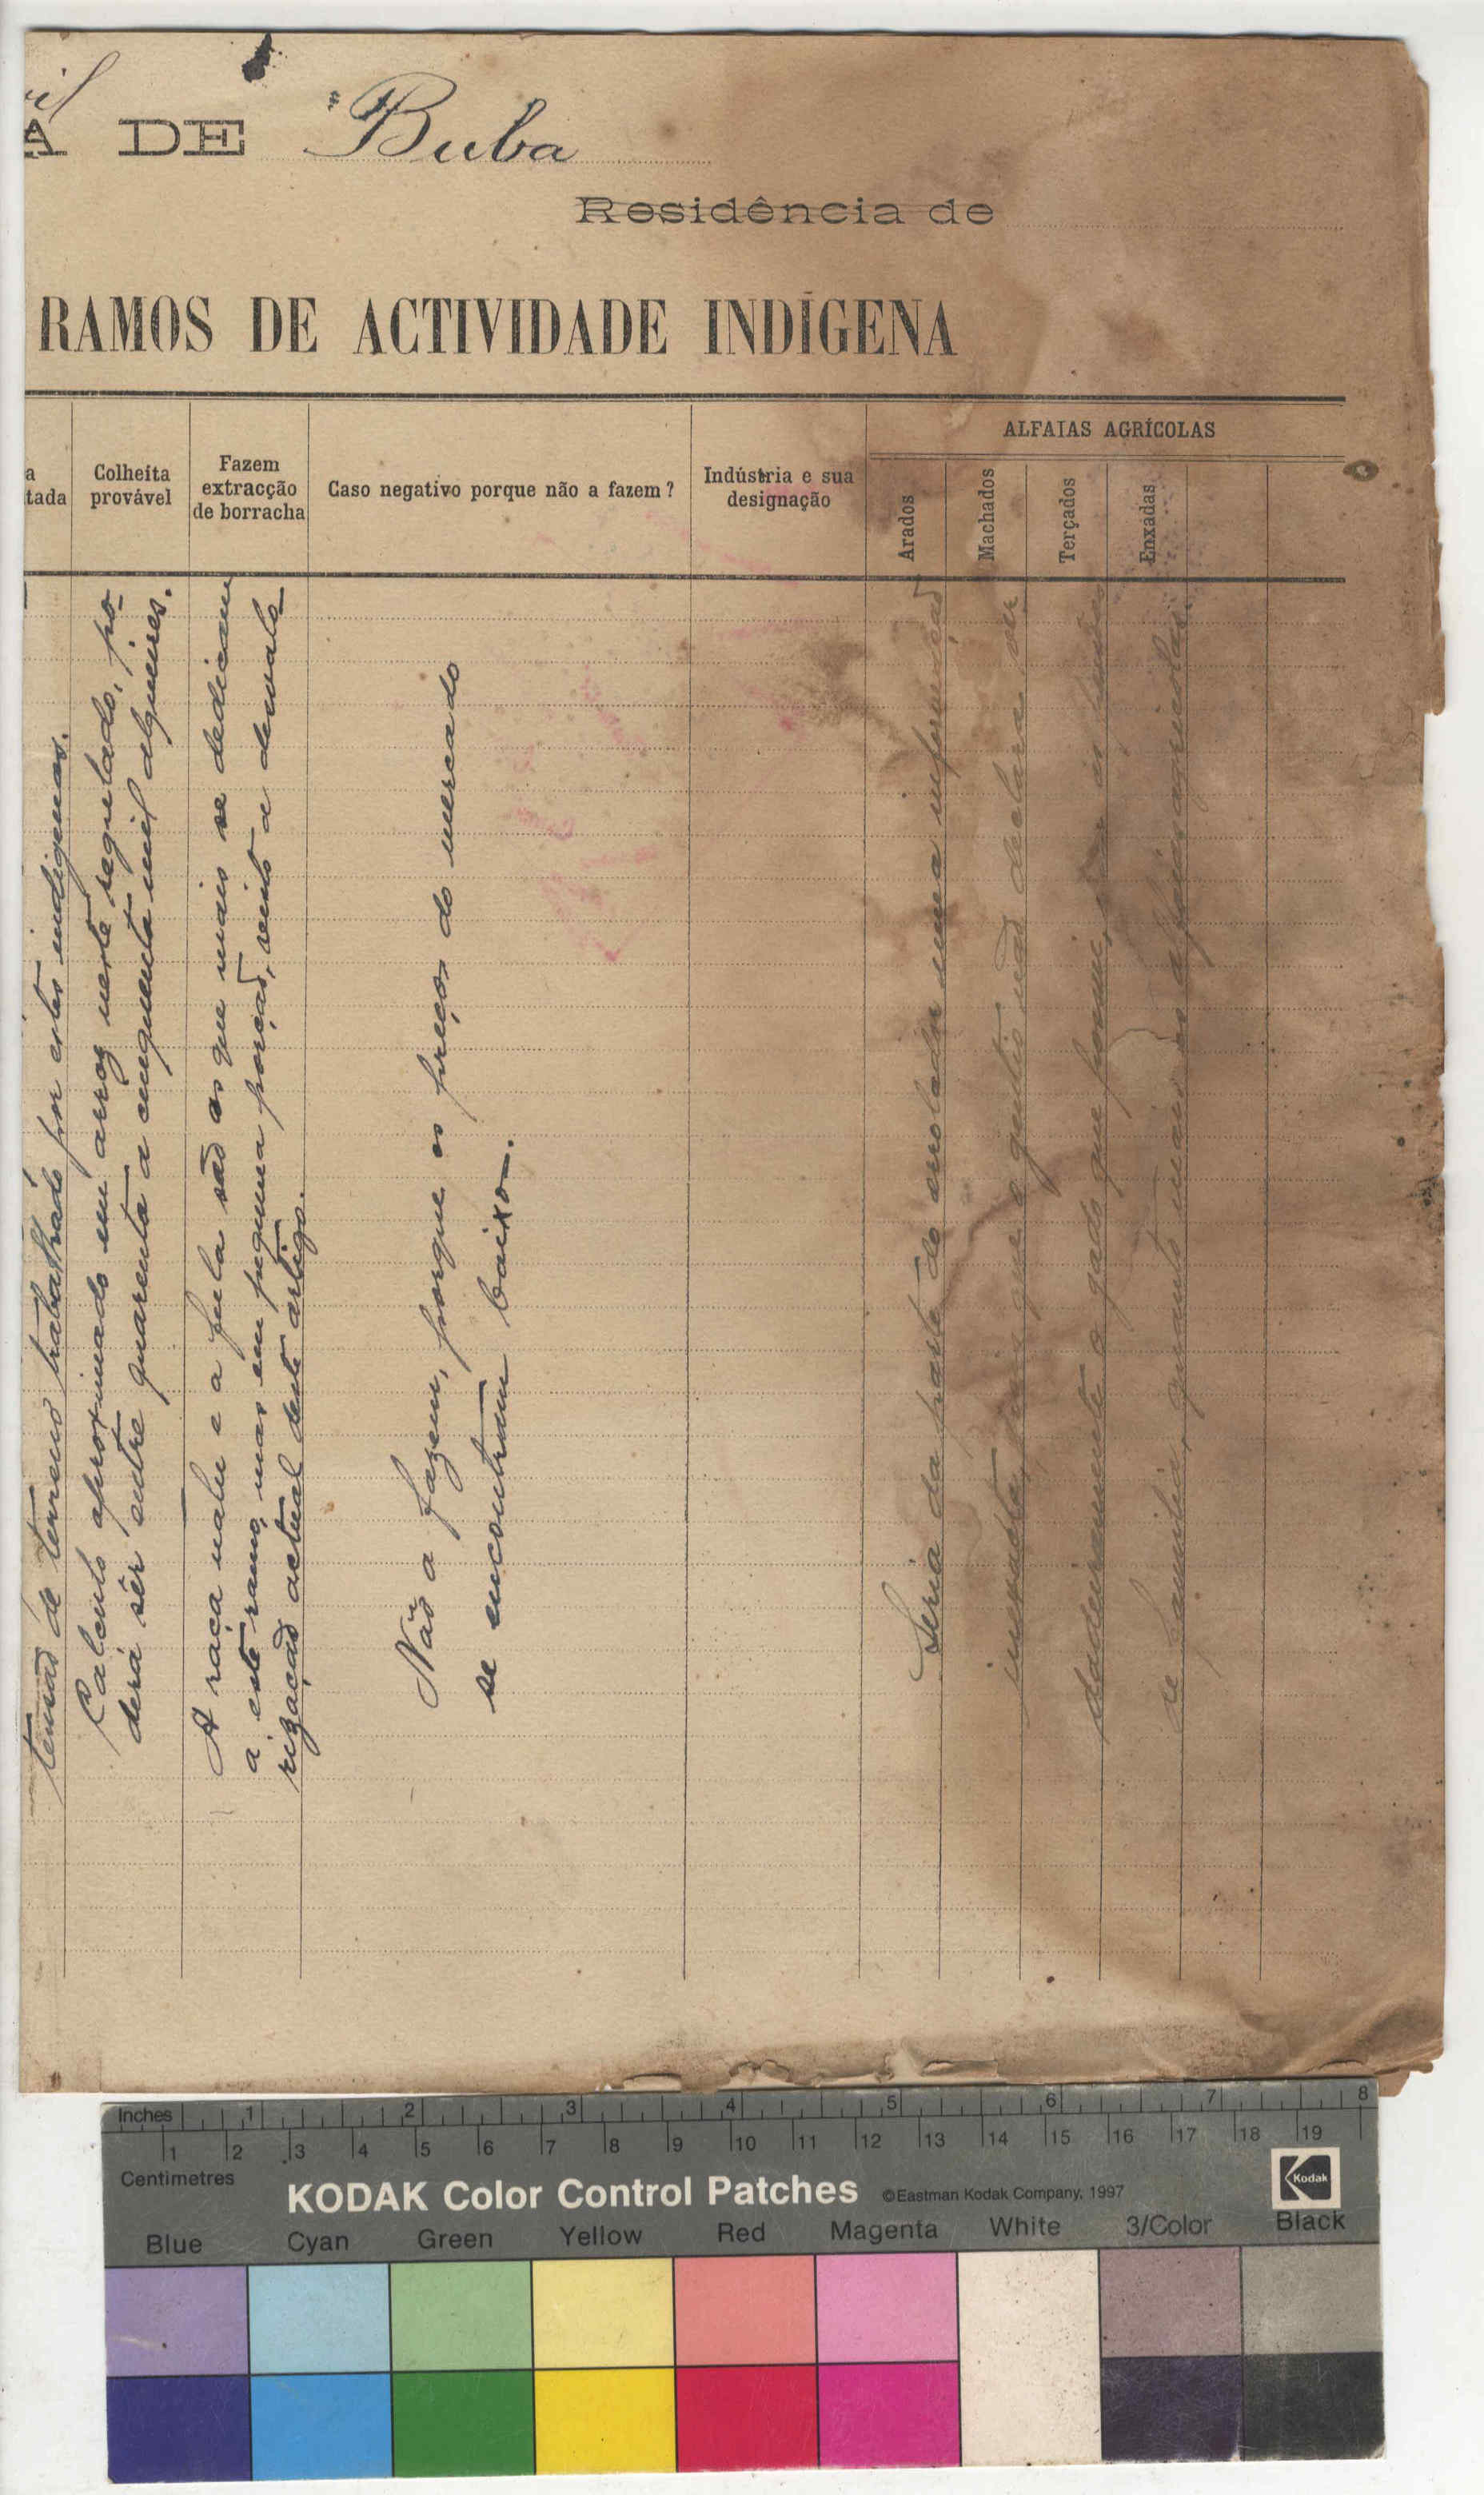 il
A DE Buba
Residência de
RAMOS DE ACTIVIDADE INDÍGENA
a
tada
Colheita
provável
Fazem
extracção
de borracha
Caso negativo porque não a fazem?
Indústria e sua
designação
ALFAIAS AGRÍCOLAS
Arados
Machados
Terçados
Enxadas
tensão de terreno trabalhado por estes indigenas.
Calculo aproximado em arroz neste regulado, po-
derá sêr entre quarenta a cinquenta mil alqueires.
A raça nalu e a fula são os que mais se dedicam
a este ramo, mas em pequena porção, visto a desvalo-
rização actual deste artigo.
Não a fazem, porque os preços do mercado
se encontram baixos.
Seria da parte do enrolador uma informação
inexacta, que o gentio não declara ver
dadeiramente o gado que possue,
de familia, quanto mais as alfaias agricolas.
Inches 1 2 3 4 5 6 7 8
1 2 3 4 5 6 7 8 9 10 11 12 13 14 15 16 17 18 19
Centimetres
KODAK Color Control Patches ©Eastman Kodak Company, 1997 Kodak
Blue Cyan Green Yellow Red Magenta White 3/Color Black